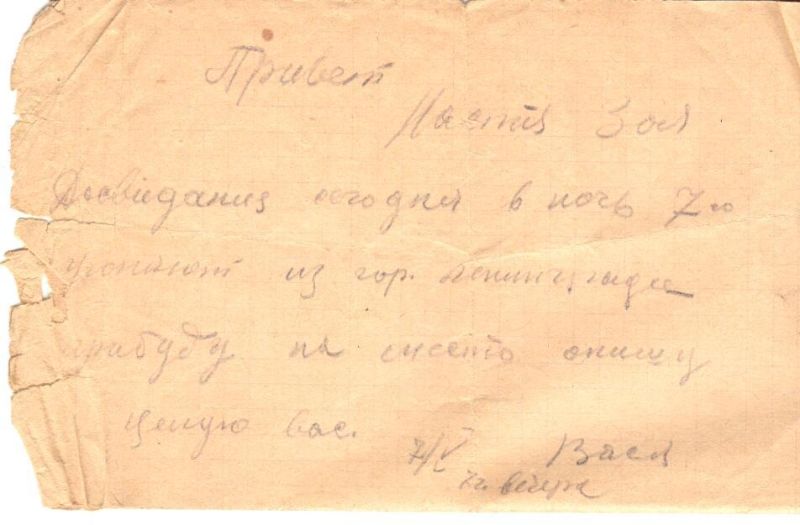 Привет
Настя Зоя
Досвидания сегодня в ночь 7го
угоняют из гор. Ленинграда
прибуду на место опишу
целую вас.
7/V Вася